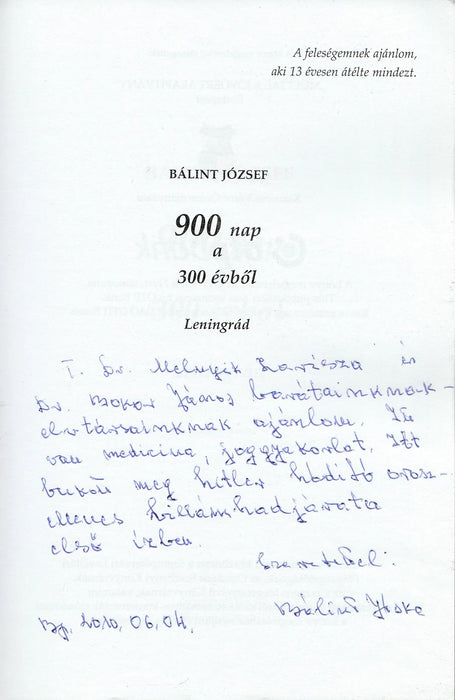 A feleségemnek ajánlom,
aki 13 évesen átélte mindezt.
BÁLINT JÓZSEF
900 nap
a
300 évből
Leningrád
T. Dr. Melnyik Larisza és
Dr. Bokor János barátainknak-
elvtársainknak ajánlom. Itt
van medicina, joggyakorlat. Itt
bukott meg hitler hódító orosz-
ellenes villámhadjárata
első ízben.
Szeretettel:
Bálint Jóska
Bp. 2010. 06. 04.